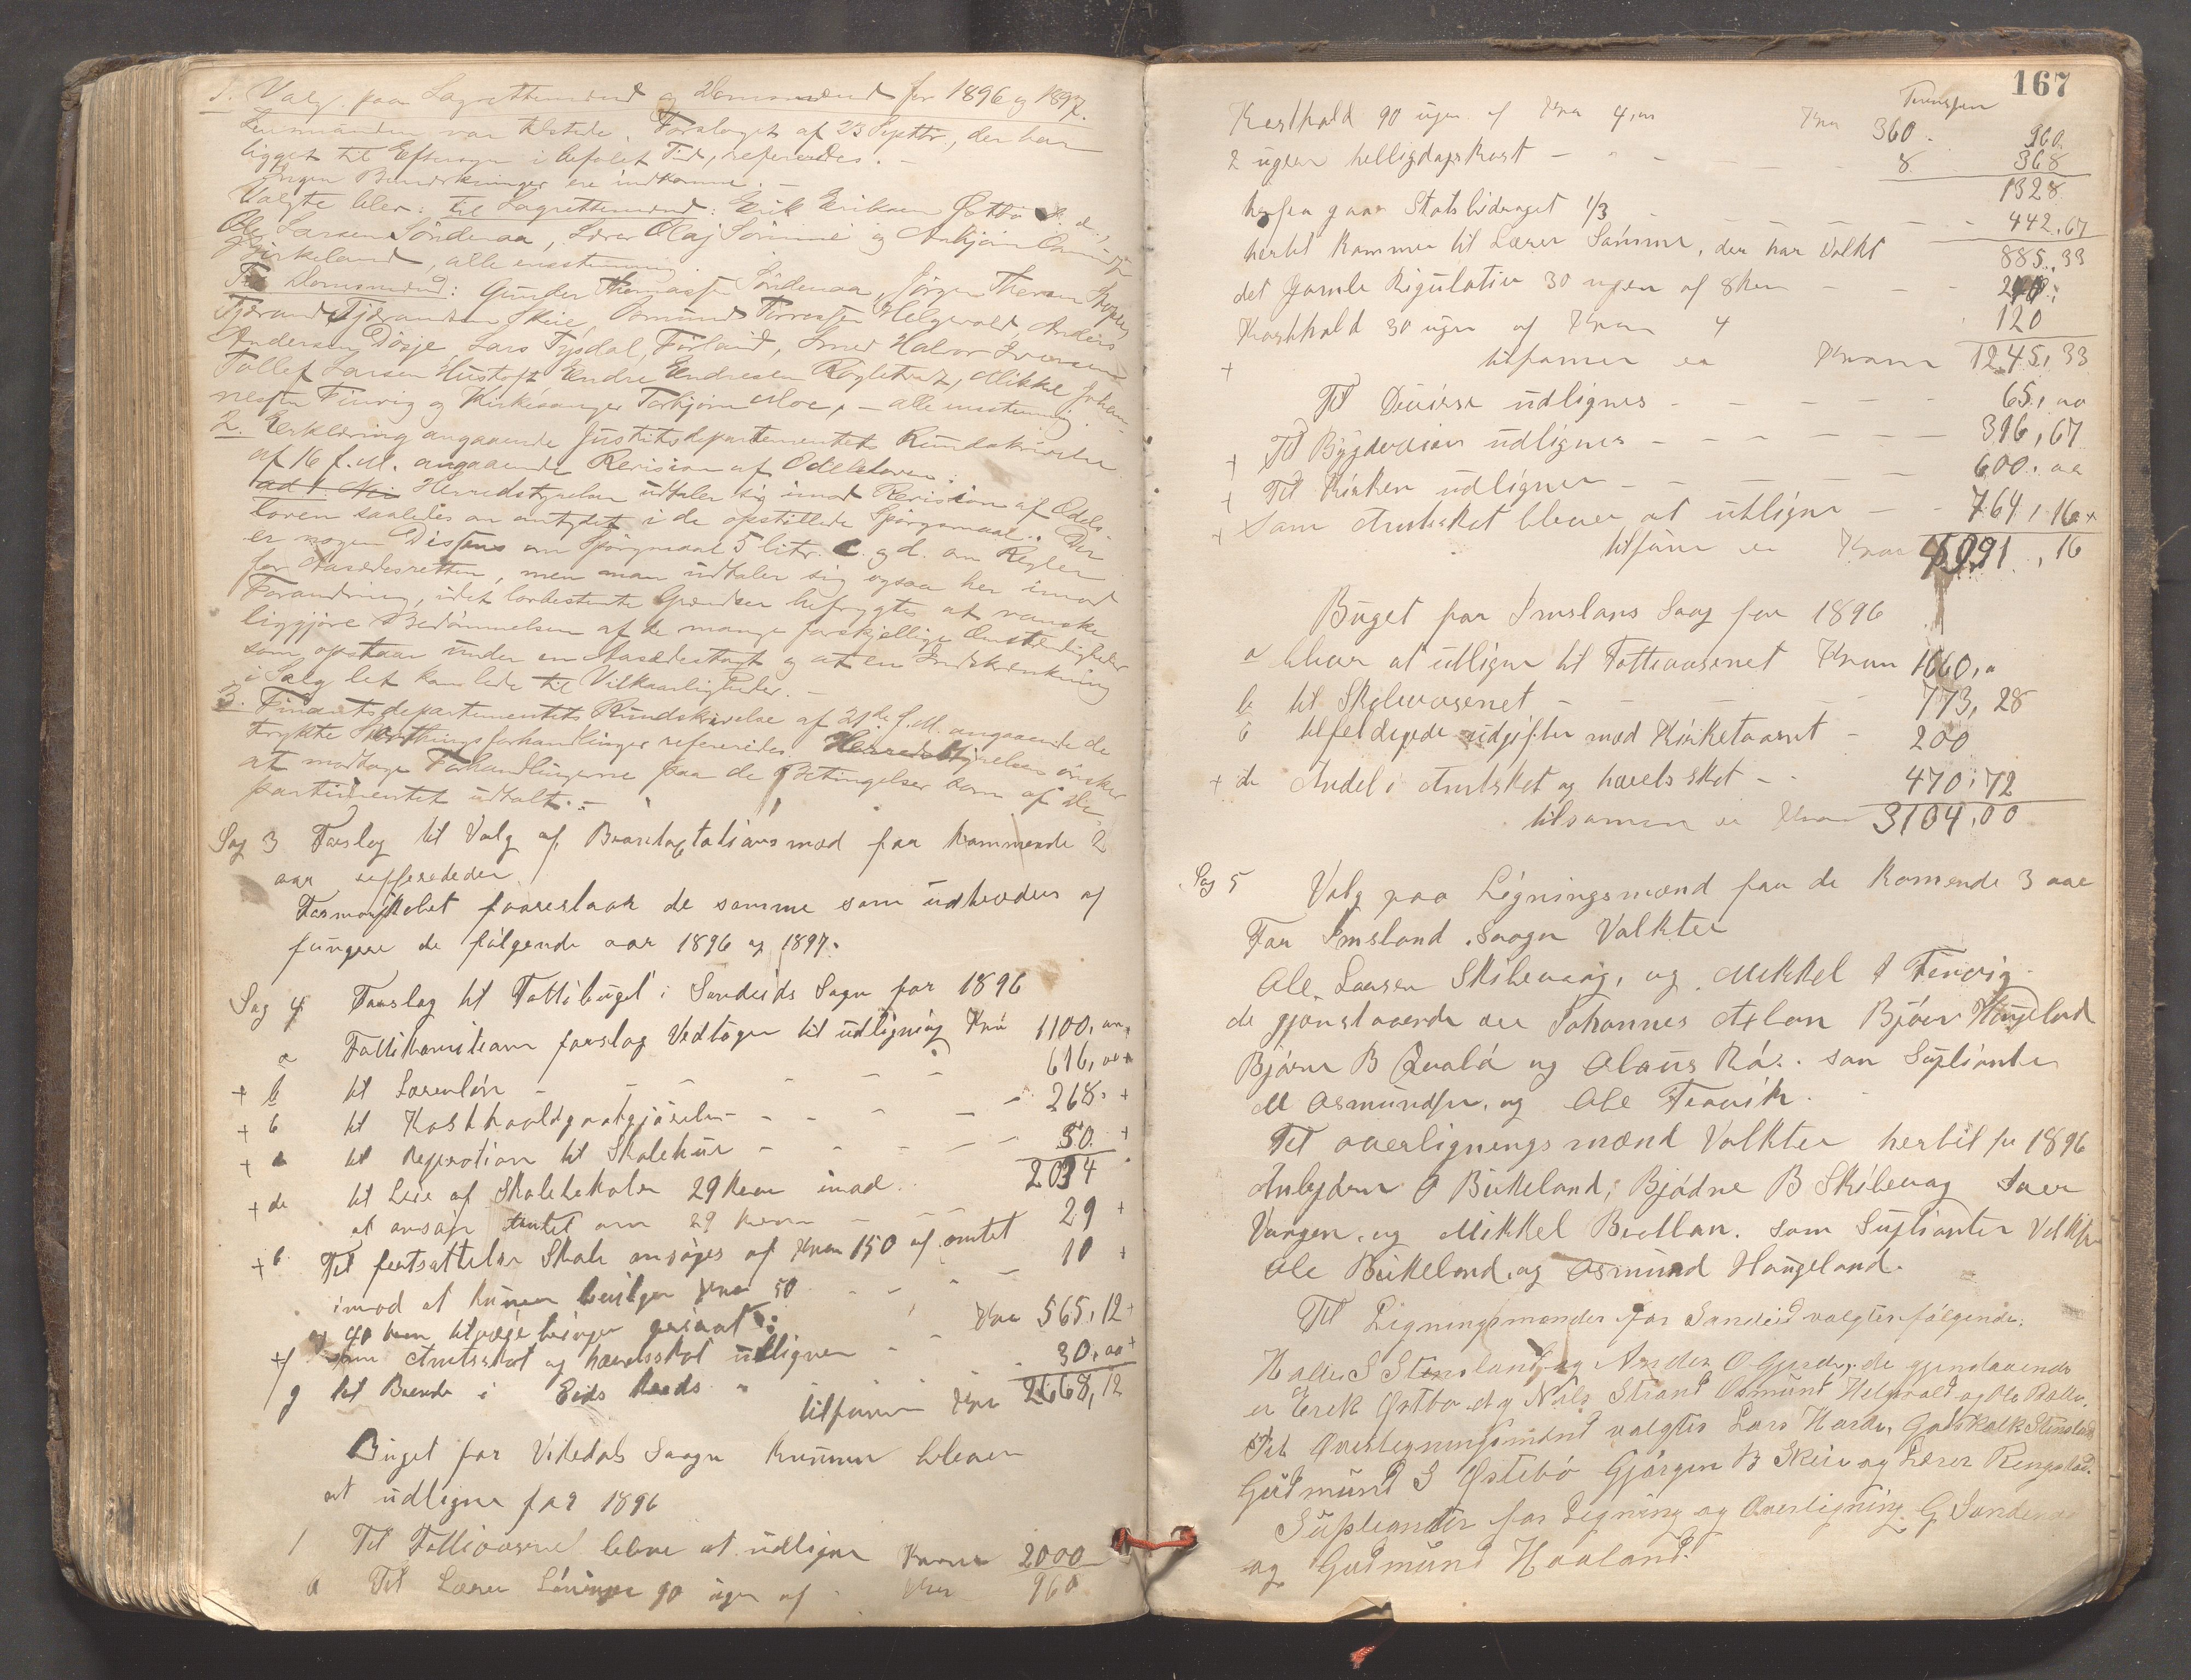 1. Valg paa Lagrettemænd og Domsmænd for 1896 og 1897.
Lensmanden var tilstede. Forslaget af 23 Septbr, der har
ligget til Eftersyn i befalet Tid, refereredes. –
Ingen Bemærkninger ere indkomne. –
Valgte blev: til Lagrettemænd: Erik Eriksen Østbø
Ole Larsen Söndenaa, Lærer Olaj Sömme og Asbjörn
Birkeland, alle enstemmig.
Til Domsmænd: Gunder Thomassen Söndenaa, Jörgen Thorsen
Tjerand Tjerandsen Skeie, Osmund Torressen Helgevold, Anders
Andersen Dösje, Lars Tysdal, Förland, Smed Halvor Iversen
Tollef Larsen Hustoft, Endre Endresen Røgletveit, Mikkel Johan-
nessen Finvig og Kirkesanger Torbjörn Moe, – alle enstemmig.
2. Erklæring angaaende Justitsdepartementets Rundskrivelse
af 16 f. M. angaaende Revision af Odelsloven.
ad 1. Nei Herredstyrelsen udtaler sig imod Revision af Odels-
loven saaledes som antydet i de opstillede Spörgsmaal. Der
er nogen Dissens om Spörgsmaal 5 litr. c. og d. om Regler
for Aasædesretten, men man udtaler sig ogsaa her imod
Forandring, idet lovbestemte Grændser befrygtes at vanske-
liggjöre Bedömmelsen af de mange forskjellige Omstændigheder
som opstaar under en Aasædestaxt og at en Indskrænkning
i Salg let kan lede til Vilkaarligheder. –
3. Finantsdepartementets Rundskrivelse af 21de f. M. angaaende de
trykte Storthingsforhandlinger refereredes. Herredstyrelsen ønsker
at modtage Forhandlingerne paa de Betingelser som af De-
partementet udtalt. –
Sag 3 Forslag til Valg af for kommende 2
aar
Formandskabet foareslaar de samme som udtræder af
fungere de fölgende aar 1896 og 1897.
Sag 4 Forslag til Fattibuget i Sandeids Sogn for 1896
a Fattikomisionen forslag Vedtages til udligning Kro 1100,
+ b til Lærerlön – – – – 616,
+ c til – – – – 268. +
+ til Repration til Skolehus – – – – 50. +
2034
+ de til Leie af Skolelokaler 29 kroner imod
at ansøge amtet om 29 kroner – – – 29 +
+ Til fortsættelse Skole ansøges af Kroner 150 af amtet 10 +
imod at
og 40 kron
+f Som Amtsskat og heredsskat udlignes – Kro 565,12 +
g til Bænde i Eids 30,00 +
tilsamen Kro 2668,12
Buget for Vikedals Saagn kumune bliver
at udligne for 1896
1 Til Fattivæsenet bliver at udligne Kroner 2000
a Til Lærer Löninger 90 uger af Kroner 960
167
Kosthold 90 uger af Kro 4,00 Kro 360. 960
2 ugers helligdagskost – – – 8 368
1328
herfra gaar Statsbidraget 1/3 – – – – 442,67
885,33
hertil kommer til Lærer Sömme, der har Valkt
det gamle Regulativ 30 uger af 8 kron – – –
Kosthold 30 uger af Kroner 4 120
+ tilsamen er Kroner 1245,33
Til Diverse udlignes – – – – – 65,00
+ Til Bygdeveien udlignes – – – – – 316,67
+ Til Kirken udlignes – – – – – 600.00
+ Som Amtsskat bliver at utligne – – 764,16 +
tilsamen er Kroner 4991,16
Buget for Imslans Saag for 1896
a bliver at utligne til Fattivæsenet Kroner 1660,
b til Skolevæsenet – – – – 773,28
c tilfeldigede udgifter med Kirketaarnet – 200
+ de Andel i Amtsskat og hæreds skat – – 470,72
tilsamen er Kroner 3104,00
Sag 5 Valg paa Ligningsmænd for de komende 3 aar
For Imsland Saagn Valktes
Ole Larsen Skibevaag, og Mikkel J Finvig
de gjenstaaende er Johannes Axlan Björn Haugeland
Björn B Qvalö og Olaus Rö. som Suplianter
M Osmundsen. og Ole
Til overlignings mænd Valktes hertil for 1896
O Birkeland, Bjödne B Skibevag Iver
Vangen. og Mikkel som Suplianter Valktes
Ole Birkeland. og Osmund Haugeland.
Til Ligningsmænder for Sandeid valgtes fölgende:
S Stensland og Anders O Gjerde, de gjenstaaende
er Erik Østbø og Nils Strand Osmund Helgevold og Ole
Til Overlligningsmænd valgtes Lars Gudskalk Stensland
Gudmund S Østebö Gjörgen B Skeie og Lærer
Suplianter for Ligning og Overligning G Söndenaa
og Gudmund Haaland.